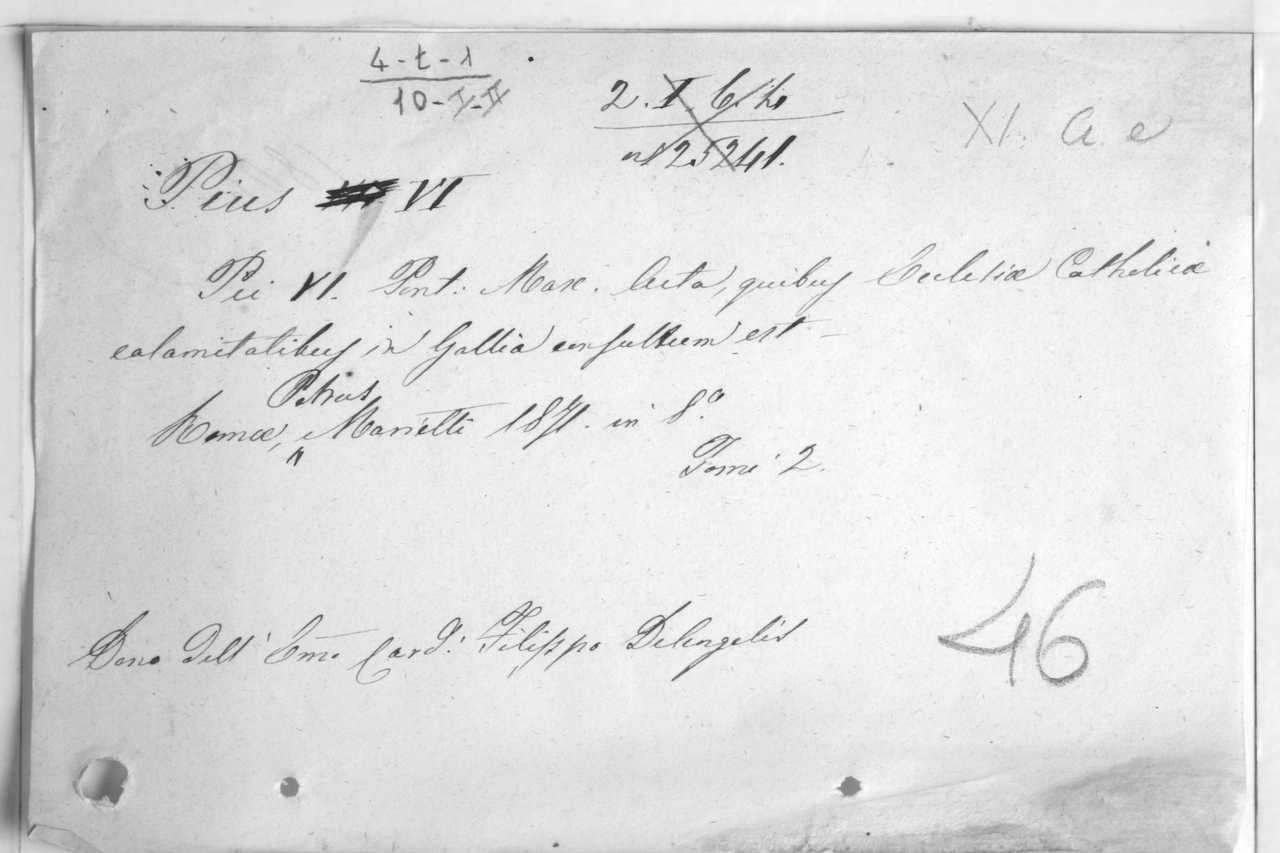 4-t-1
10-I-II
2. I. 6.
n° 25241.
XI. a e
Pius VI
Pii VI. Pont: Max. Acta, quibus Ecclesiæ Catholicæ
calamitatibus in Gallia consultum est
Petrus
Romæ, Marietti 1871. in 8.°
Tomi 2.
46
Dono dell' Emo Card: Filippo DeAngelis